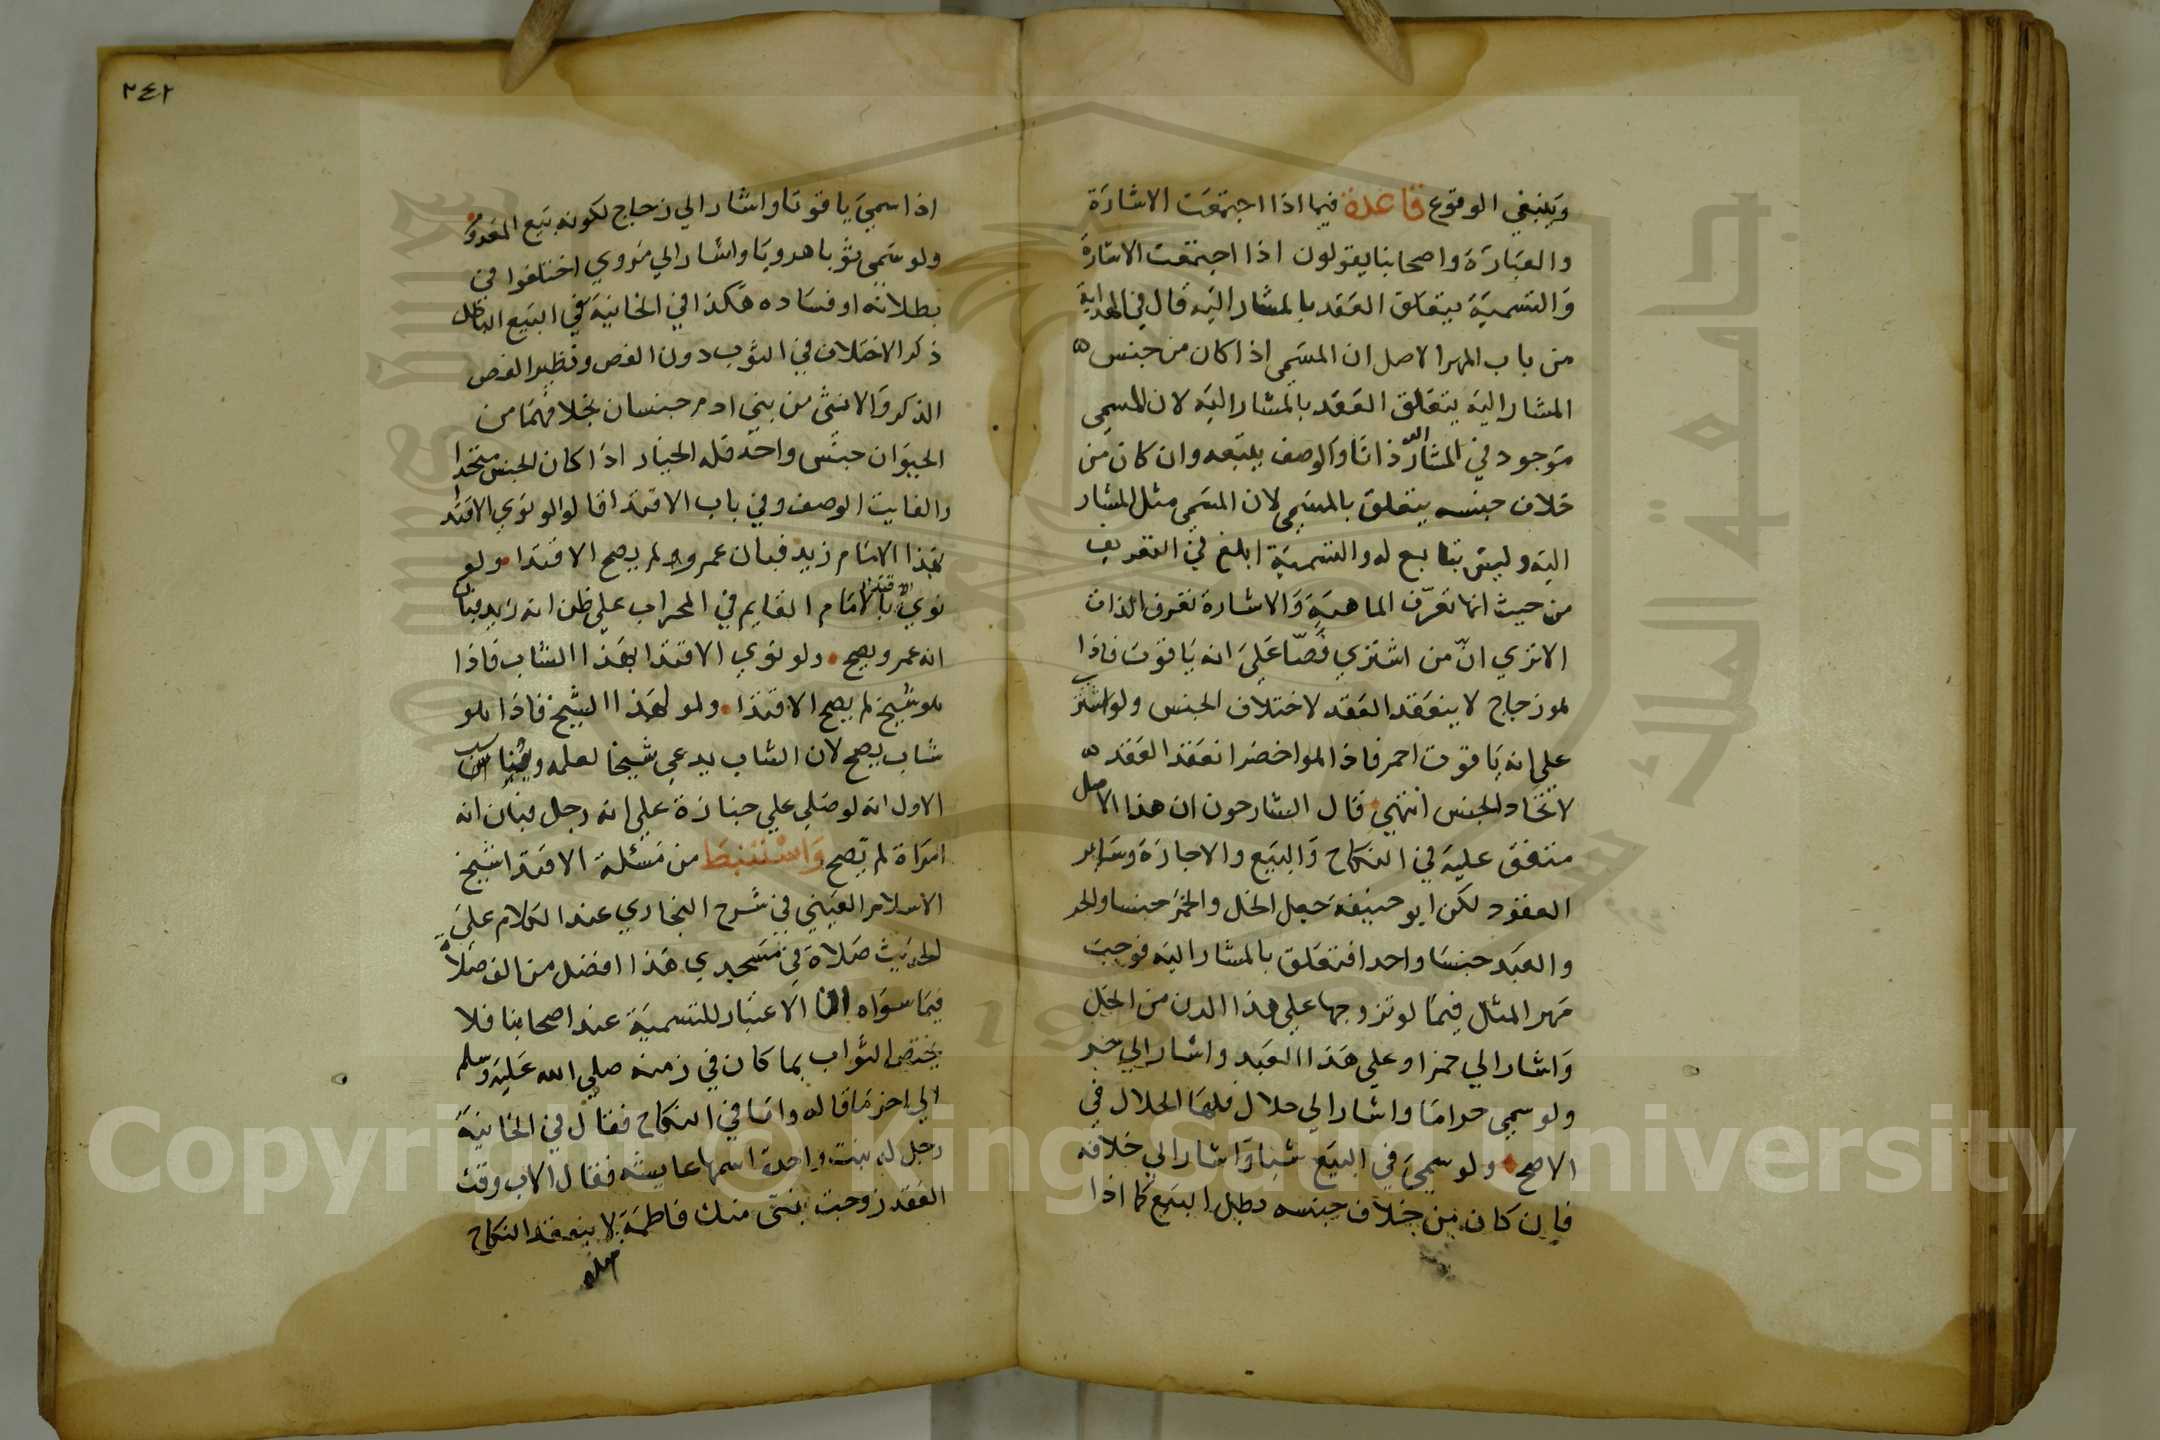 وينبغي الوقوع قاعدة فيما اذا اجتمعت الاشارة
والعبارة واصحابنا يقولون اذا اجتمعت الاشارة
والتسمية يتعلق العقد بالمشار اليه قال في الهداية
من باب المهر الاصل ان المسمى اذا كان من جنس
المشار اليه يتعلق العقد بالمشار اليه لان المسمى
موجود في المشار اليه ذاتا والوصف يتبعه وان كان من
خلاف جنسه يتعلق بالمسمى لان المسمى مثل المشار
اليه وليس بتابع له والتسمية ابلغ في التعريف
من حيث انها تعرّف الماهية والاشارة تعرف الذات
الا تري انّ من اشتري فصّا على انه ياقوت فاذا
هو زجاج لا ينعقد العقد لاختلاف الجنس ولو اشتري
علي انه ياقوت احمر فاذا هو اخضر انعقد العقد
لاتحاد الجنس انتهي قال الشارحون ان هذا الاصل
متفق عليه في النكاح والبيع والاجارة وساير
العقود لكن ابو حنيفة جعل الخل والخمر جنسا والحر
والعبد جنسا واحدا فتعلق بالمشار اليه فوجب
مهر المثل فيما لو تزوجها علي هذا الدن من الخل
واشار الي خمر او علي هذا العبد واشار الي حر
ولو سمي حراما واشار الي حلال فلها الحلال في
الاصح ولو سمي في البيع شيا واشار الي خلافه
فان كان من خلاف جنسه بطل البيع كما اذا
٢٤٢
اذا سمي ياقوتا واشار الي زجاج لكونه بيع المعدوم
ولو سمي ثوبا هرويا واشار الي مروي اختلفوا في
بطلانه او فساده هكذا في الخانية في البيع الباطل
ذكر الاختلاف في الثوب دون الفص ونظير الفص
الذكر والانثى من بني ادم جنسان بخلافهما من
الحيوان جنس واحد فله الخيار اذا كان الجنس متحدا
والفايت الوصف وفي باب الاقتدا قالوا لو نوي الاقتدا
بهذا الامام زيد فبان عمروا لم يصح الاقتدا ولو
نوي الاقتدا بالامام القايم في المحراب علي ظن انه زيد فبان
انه عمرو يصح ولو نوي الاقتدا بهذا الشاب فاذا
هو شيخ لم يصح الاقتدا ولو لهذا الشيخ فاذا هو
شاب يصح لان الشاب يدعي شيخا لعلمه وقياس
الاول انه لو صلي علي جنازة علي انه رجل فبان انه
امراة لم تصح واستنبط من مسئلة الاقتدا شيخ
الاسلام العيني في شرح البخاري عند الكلام على
الحديث صلاة في مسجدي هذا افضل من الف صلاة
فيما سواه ان الاعتبار للتسمية عند اصحابنا فلا
يختص الثواب بما كان في زمنه صلي الله عليه وسلم
الي اخر ما قاله واما في النكاح فقال في الخانية
رجل له بنت واحدة اسمها عايشه فقال الاب وقت
العقد زوجت بنتى منك فاطمة لا ينعقد النكاح
Copyright © King Saud University
جامعة الملك سعود